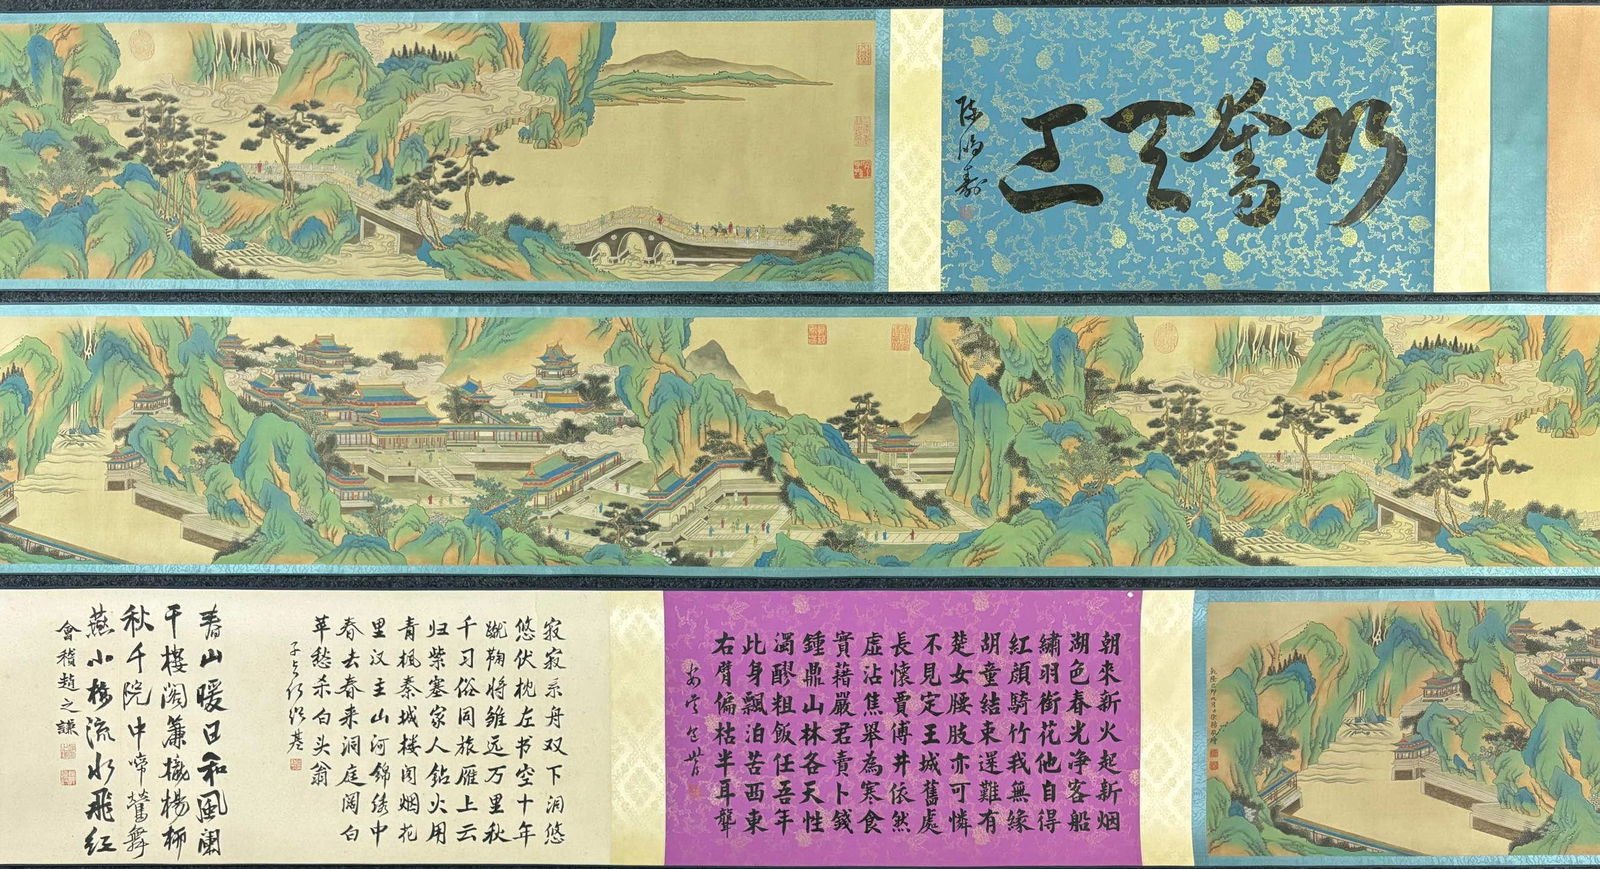 奮天上
陳鴻壽
朝來新火起新烟
湖色春光净客船
繡羽銜花他自得
紅顔騎竹我無緣
胡童結束還難有
楚女腰肢亦可憐
不見定王城舊處
長懷賈傅井依然
虛沾焦舉為寒食
實藉嚴君賣卜錢
鍾鼎山林各天性
濁醪粗飯任吾年
此身飄泊苦西東
右臂偏枯半耳聾
寂寂系舟双下洞悠
悠伏枕左书空十年
蹴鞠将雏远万里秋
千习俗同旅雁上云
归柴塞家人钻火用
青枫秦城楼阁烟花
里汉主山河锦绣中
春去春来洞庭阔白
苹愁杀白头翁
春山暖日和風闌
干樓閣簾櫳楊柳
秋千院中啼鶯舞
燕小橋流水飛紅
會稽趙之謙